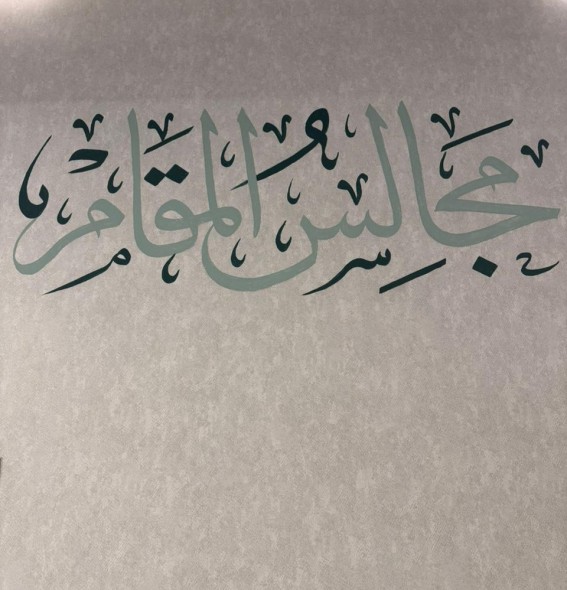 مجالس المقام